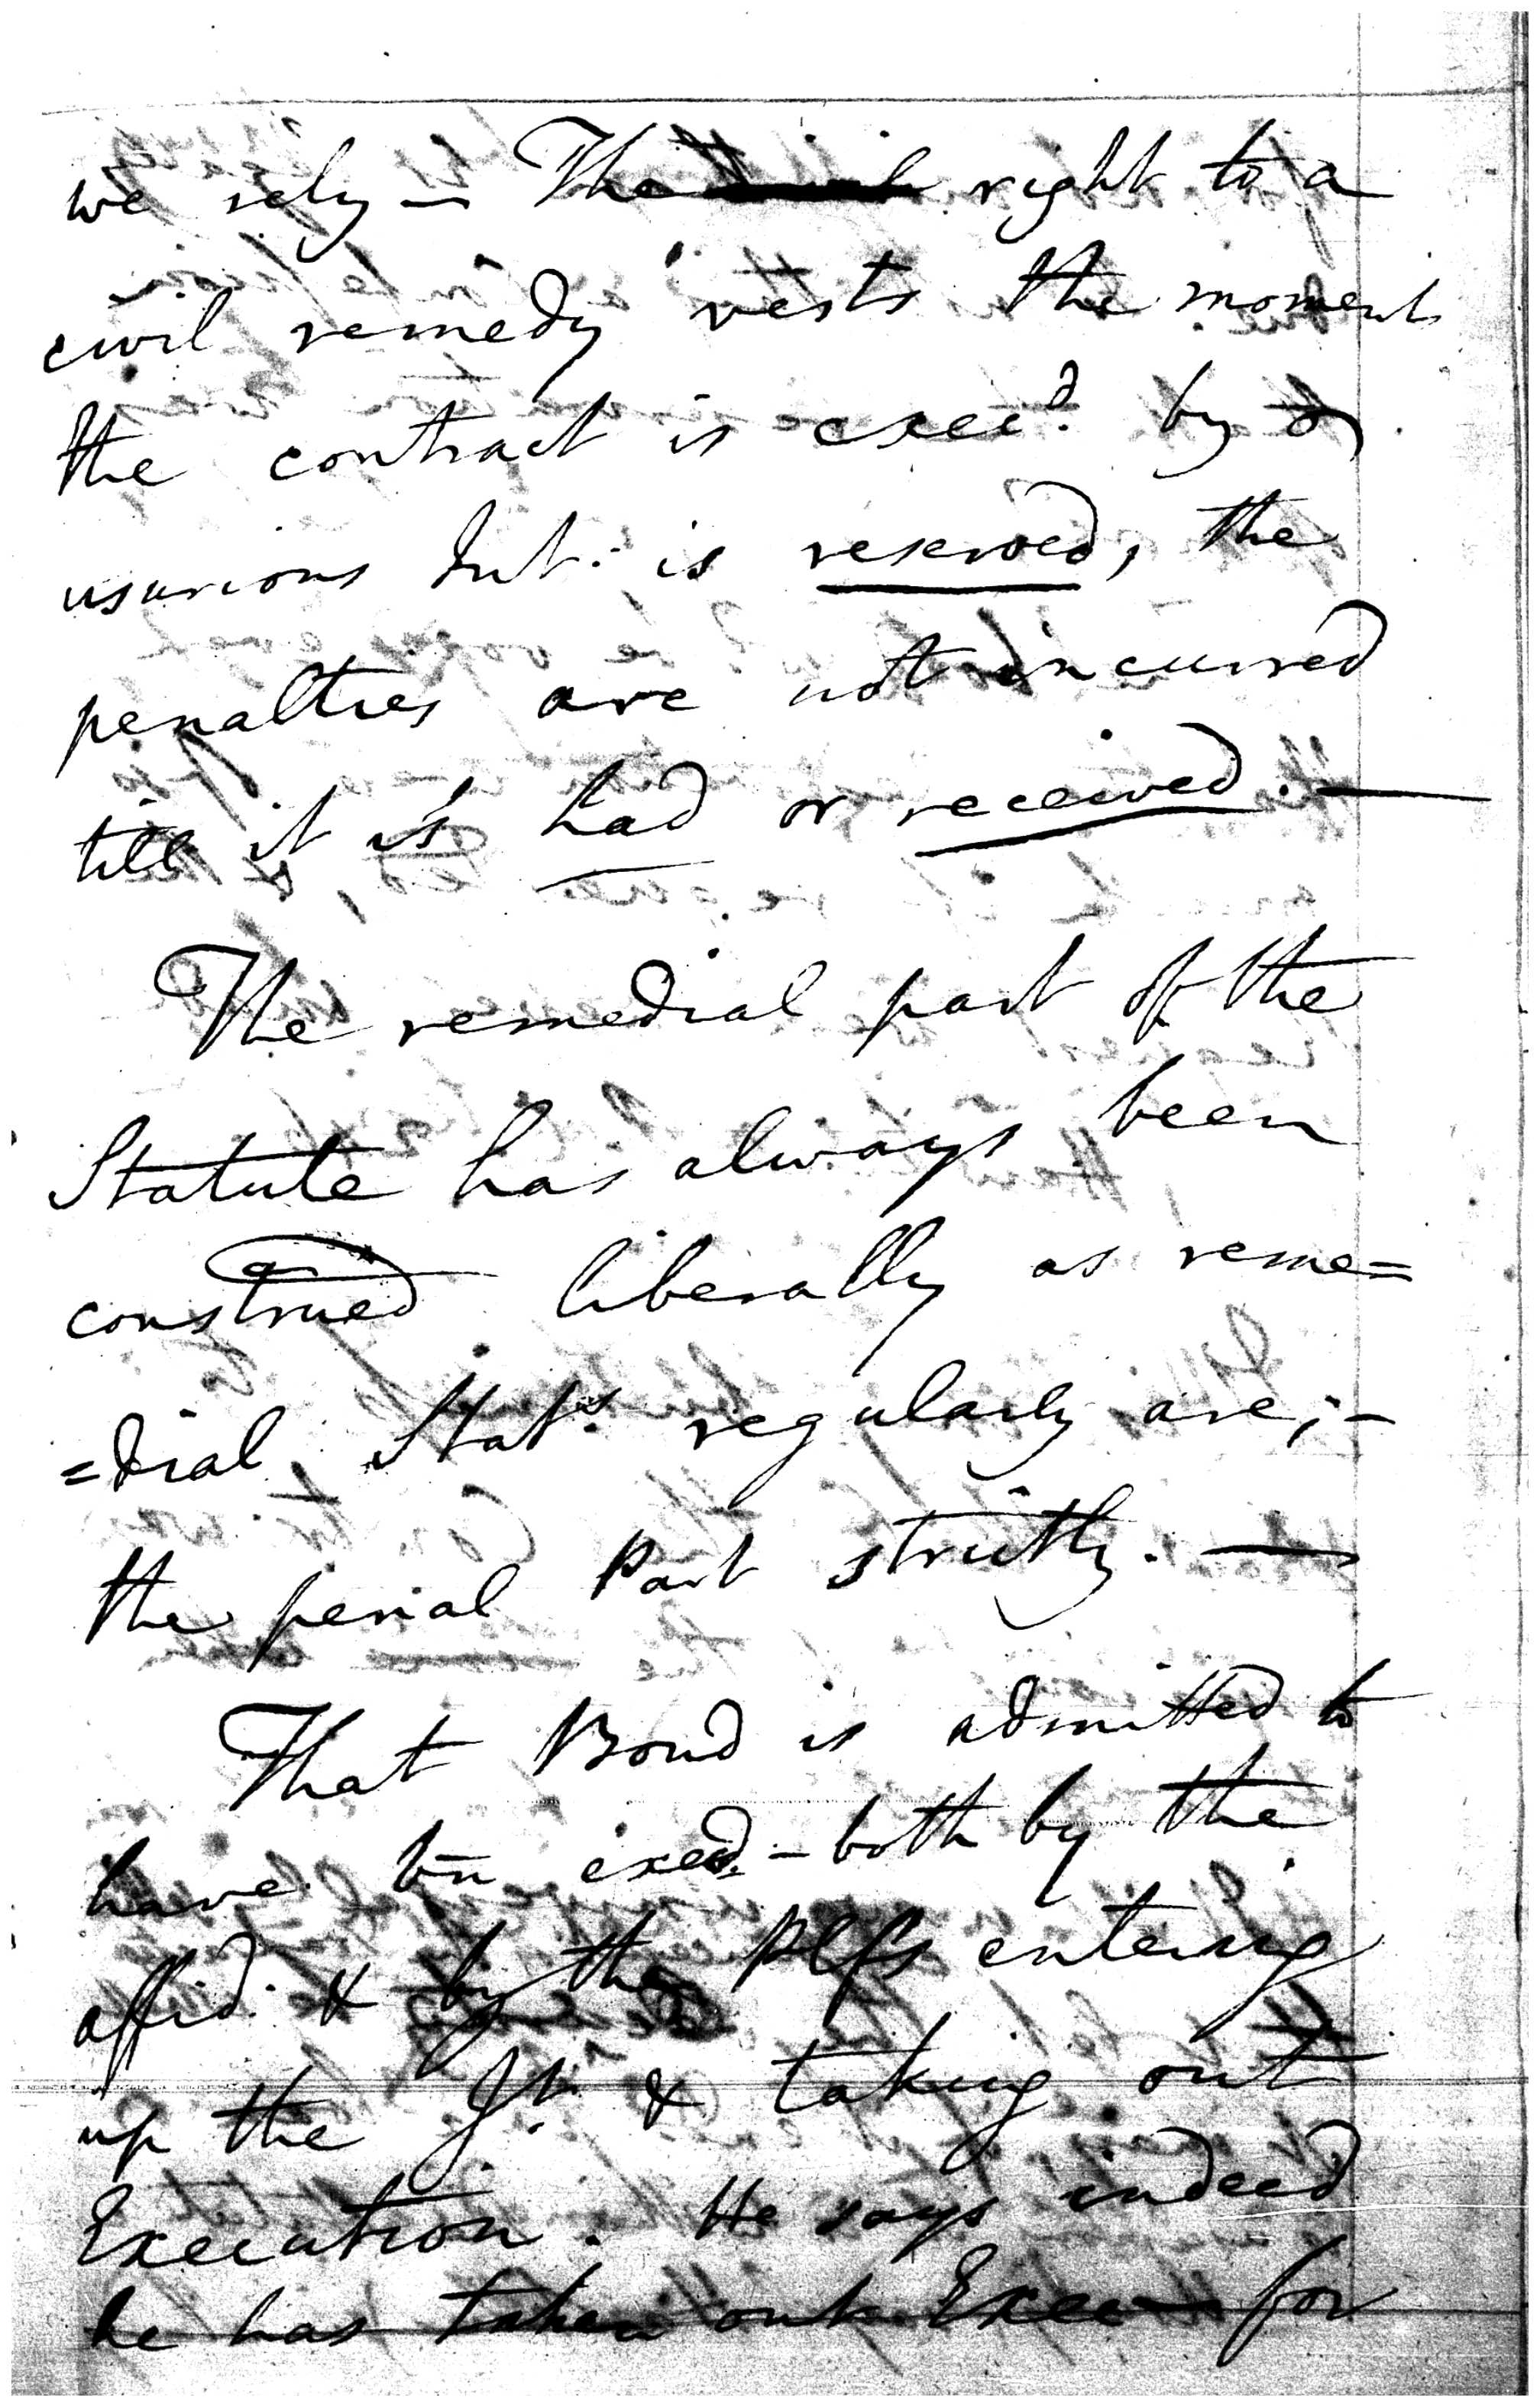 we rely — The right to a
civil remedy vests the moment
the contract is execd. by or
usurious Int. is reserved, the
penalties are not incurred
till it is had or received. —
The remedial part of the
Statute has always been
construed liberally as reme=
=dial Stats. regularly are; -
the penal Part strictly. —
That Bond is admitted to
have bn execd. - both by the
affid. & by the Plfs entering
up the Jt. & taking out
Execution. He says indeed
he has taken out Execn for